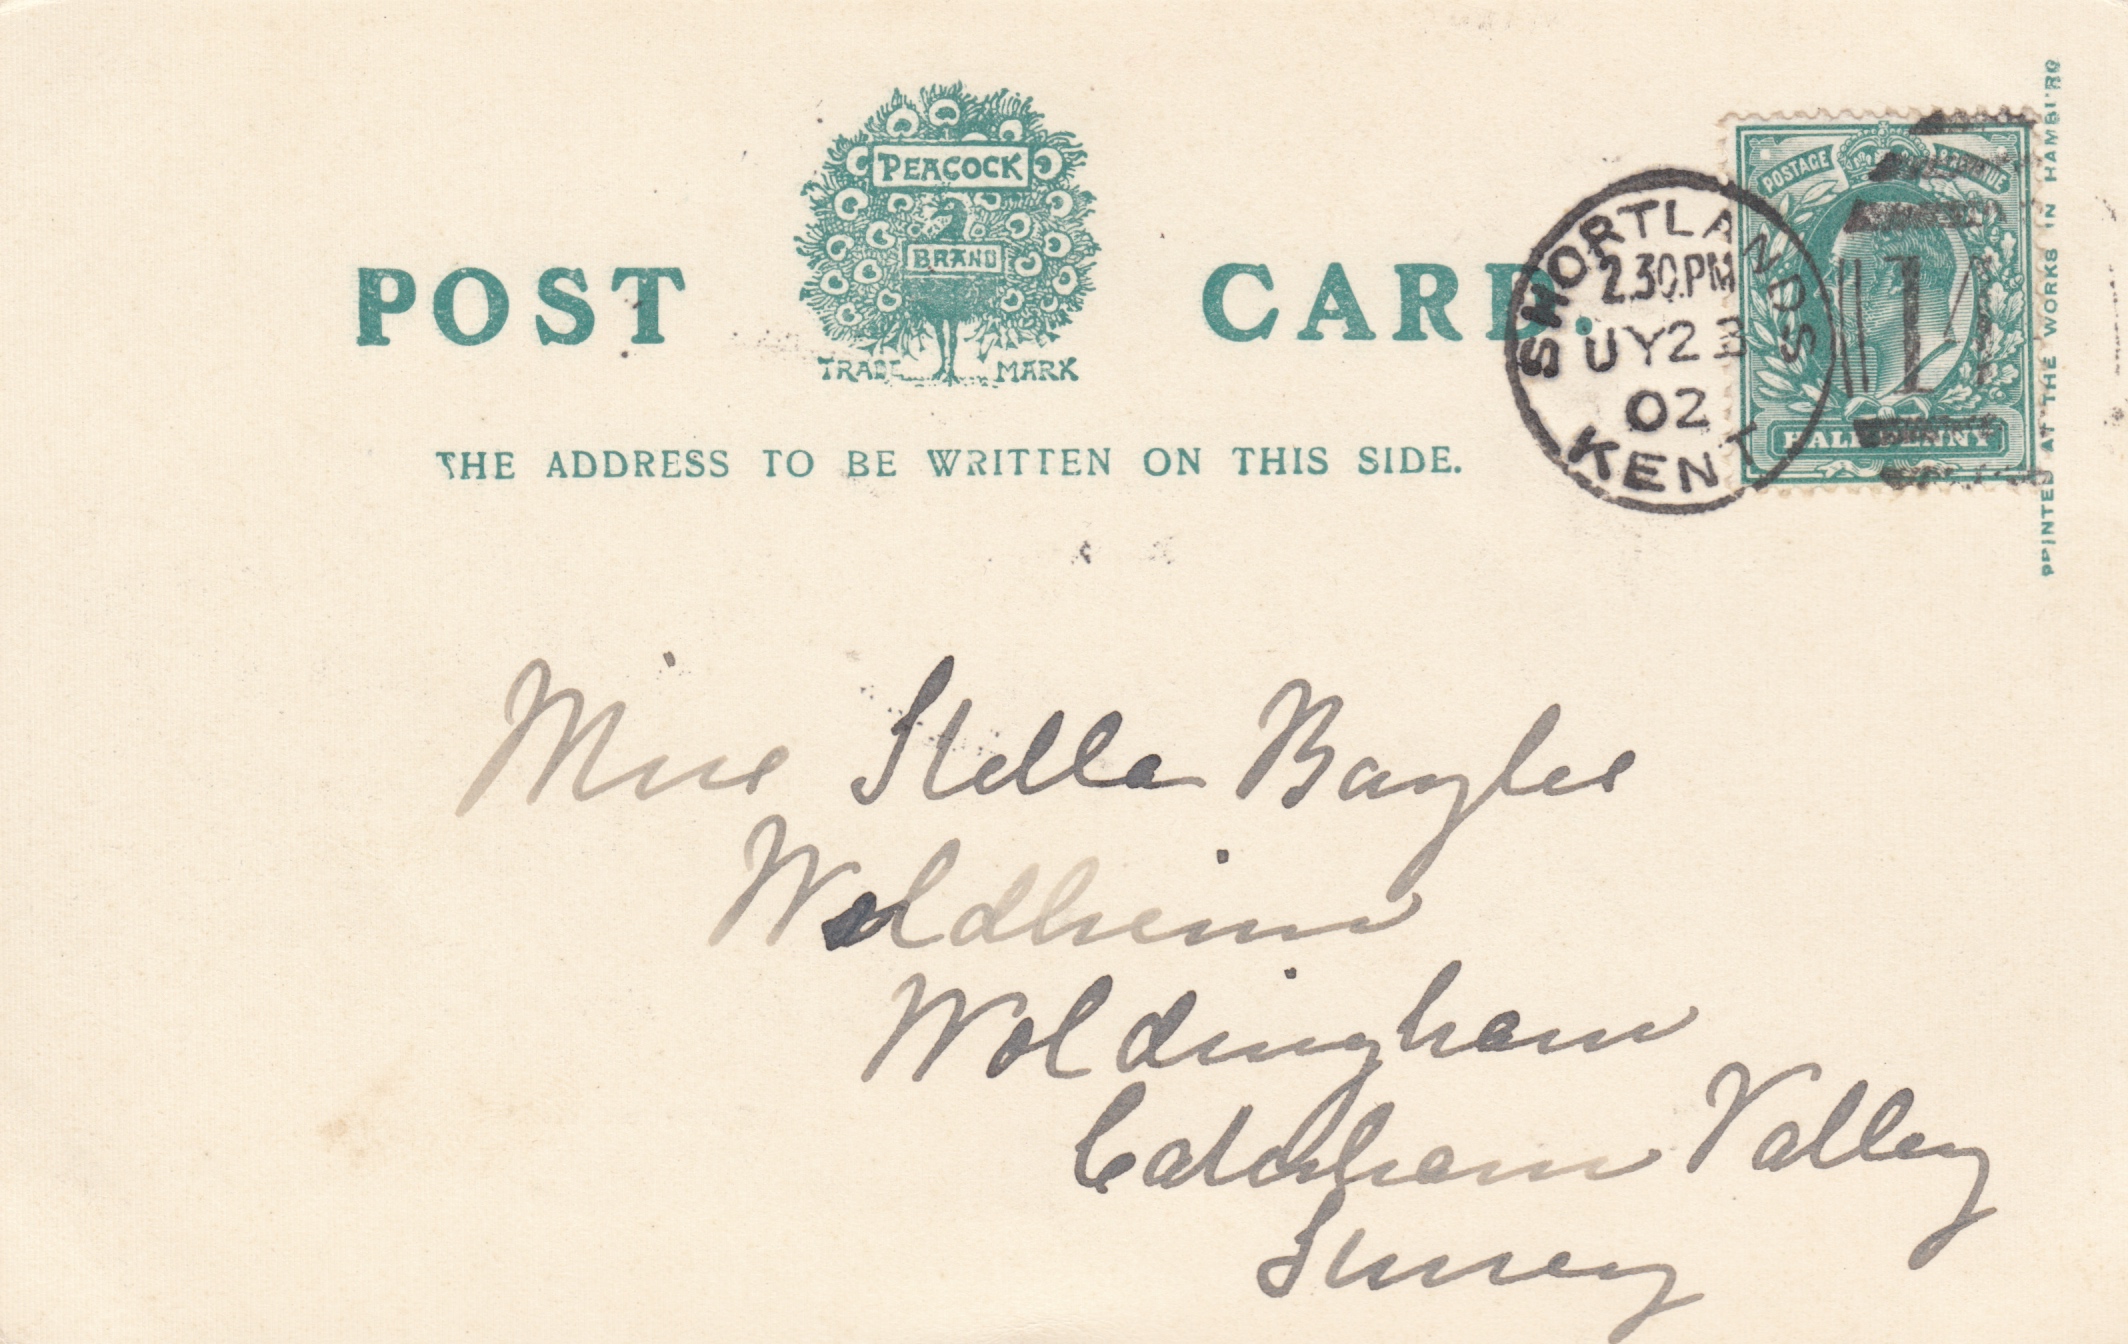 PEACOCK
BRAND
POST CARD.
TRADE MARK
THE ADDRESS TO BE WRITTEN ON THIS SIDE.
SHORTLANDS
2.30.PM
JY 23
02
KENT
POSTAGE REVENUE
HALFPENNY
PRINTED AT THE WORKS IN HAMBURG
Miss Stella Bayles
Woldheim
Woldingham
Caterham Valley
Surrey